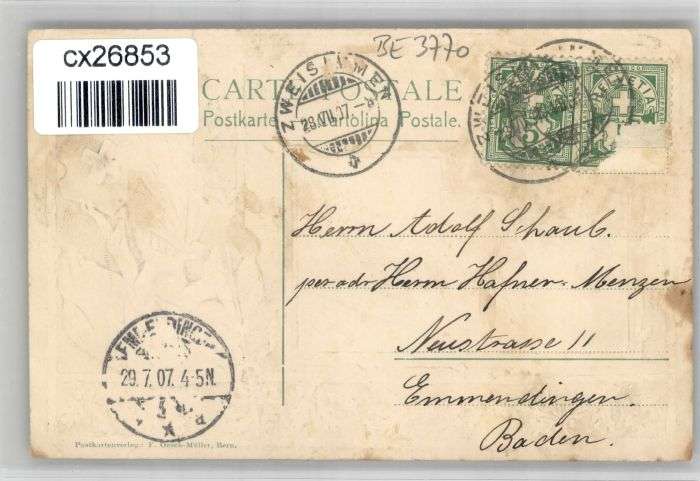 cx26853
BE 3770
CARTE POSTALE
Postkarte. Cartolina Postale.
ZWEISIMMEN
29.VII.07.-8
HELVETIA
Herrn Adolf Schaub.
per adr Herrn Hafner-Menzen
Neustrasse 11
Emmendingen.
Baden.
EMMENDINGEN
29.7.07. 4-5N.
Postkartenverlag: F. Husch-Müller, Bern.